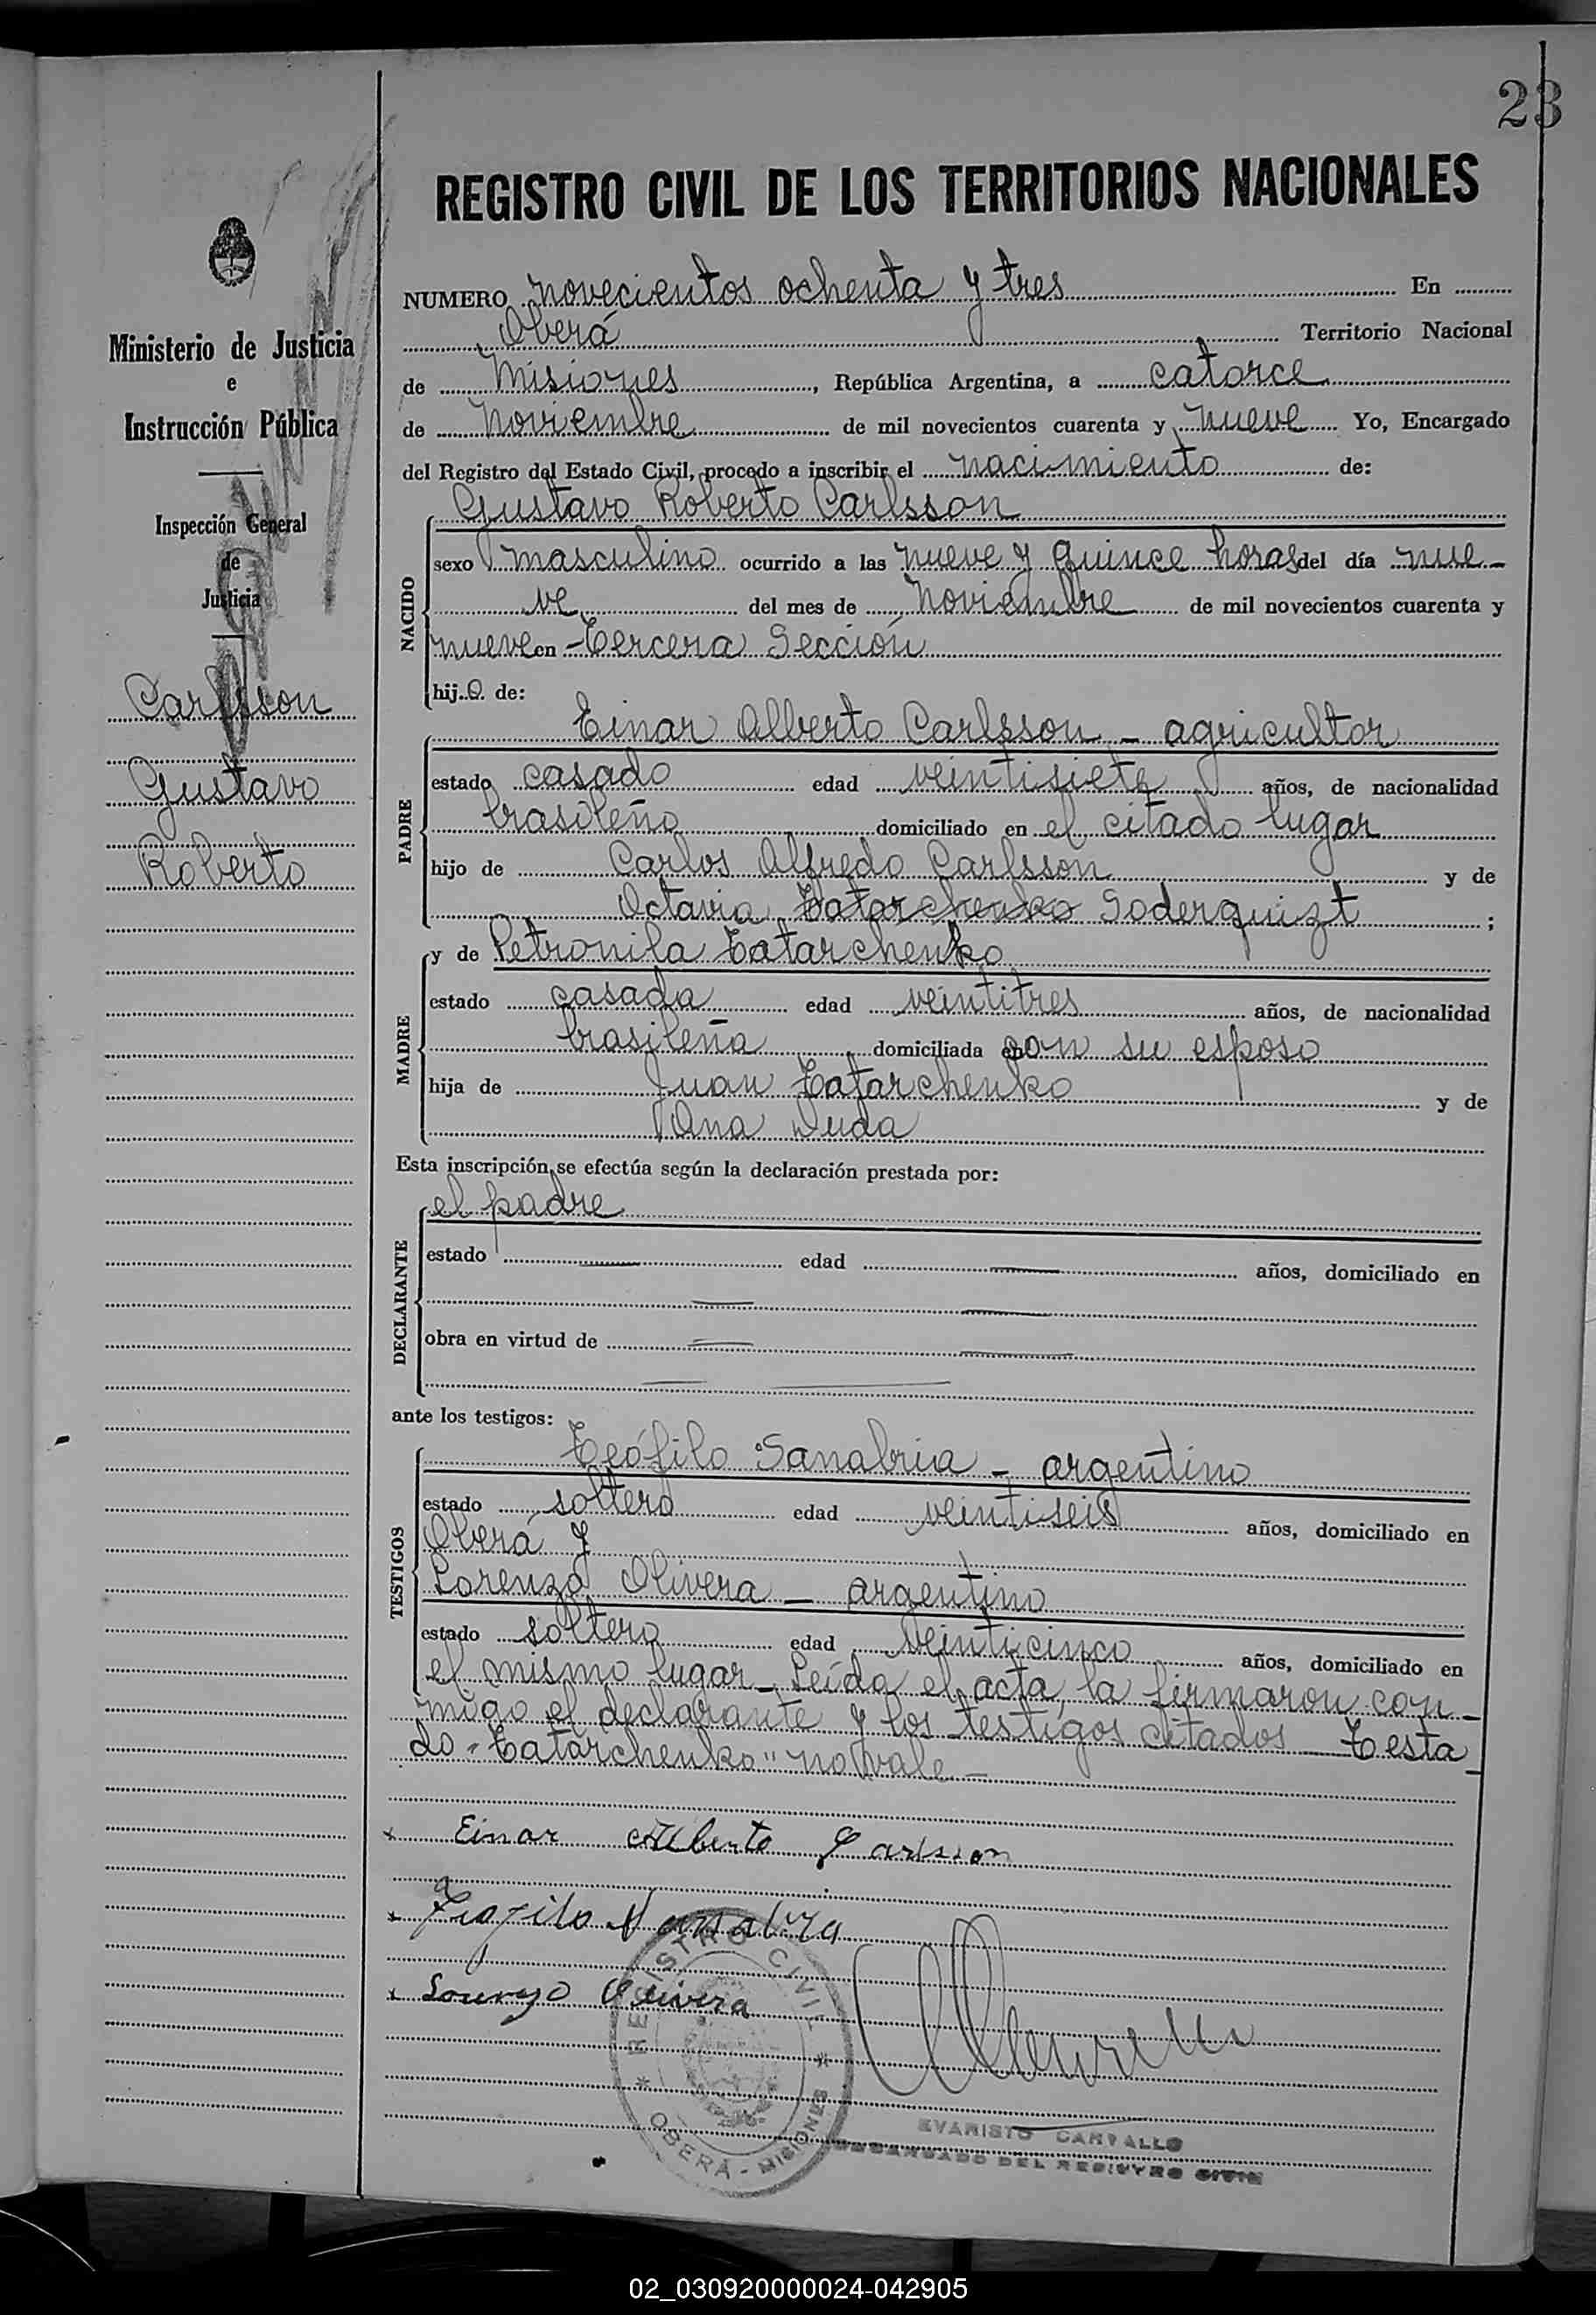 23
REGISTRO CIVIL DE LOS TERRITORIOS NACIONALES
Ministerio de Justicia
e
Instrucción Pública
Inspección General
de
Justicia
Carlsson
Gustavo
Roberto
NUMERO novecientos ochenta y tres En
Oberá Territorio Nacional
de Misiones, República Argentina, a catorce
de Noviembre de mil novecientos cuarenta y nueve Yo, Encargado
del Registro del Estado Civil, procedo a inscribir el nacimiento de:
Gustavo Roberto Carlsson
NACIDO
sexo masculino ocurrido a las nueve y quince horas del día nue-
ve del mes de Noviembre de mil novecientos cuarenta y
nueve en Tercera Sección
hijo de:
Einar Alberto Carlsson - agricultor
PADRE
estado casado edad veintisiete años, de nacionalidad
brasileño domiciliado en el citado lugar
hijo de Carlos Alfredo Carlsson y de
Octavia Tatarchenko Soderquizt ;
y de Petronila Tatarchenko
MADRE
estado casada edad veintitres años, de nacionalidad
brasileña domiciliada en con su esposo
hija de Juan Tatarchenko y de
Ana Duda
Esta inscripción se efectúa según la declaración prestada por:
el padre
DECLARANTE
estado edad años, domiciliado en
obra en virtud de
ante los testigos:
Teófilo Sanabria - argentino
TESTIGOS
estado soltero edad veintiseis años, domiciliado en
Oberá y
Lorenzo Olivera - argentino
estado soltero edad veinticinco años, domiciliado en
el mismo lugar - Leída el acta, la firmaron con-
migo el declarante y los testigos citados - Testa-
do "Tatarchenko" no vale -
x Einar Alberto Carlsson
x Teofilo Sanabria
x Lorenzo Olivera
REGISTRO CIVIL * OBERÁ - MISIONES *
EVARISTO CARVALLO
ENCARGADO DEL REGISTRO CIVIL
02_030920000024-042905